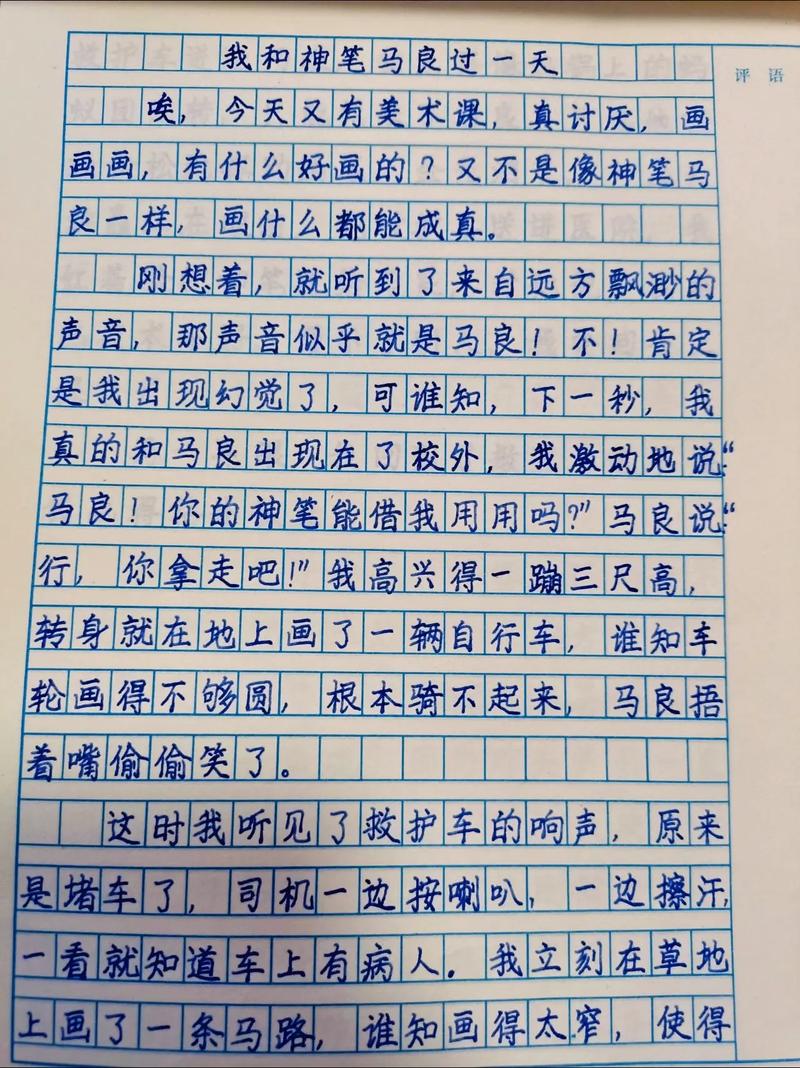 评语
我和神笔马良过一天
唉，今天又有美术课，真讨厌，画
画画，有什么好画的？又不是像神笔马
良一样，画什么都能成真。
刚想着，就听到了来自远方飘渺的
声音，那声音似乎就是马良！不！肯定
是我出现幻觉了，可谁知，下一秒，我
真的和马良出现在了校外，我激动地说“
马良！你的神笔能借我用用吗？”马良说“
行，你拿走吧！”我高兴得一蹦三尺高，
转身就在地上画了一辆自行车，谁知车
轮画得不够圆，根本骑不起来，马良捂
着嘴偷偷笑了。
这时我听见了救护车的响声，原来
是堵车了，司机一边按喇叭，一边擦汗，
一看就知道车上有病人。我立刻在草地
上画了一条马路，谁知画得太窄，使得